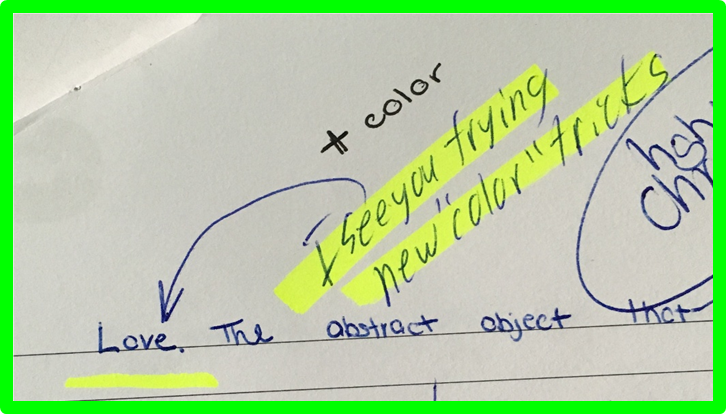 + color
I see you trying
new "color" tricks
Love. The abstract object that